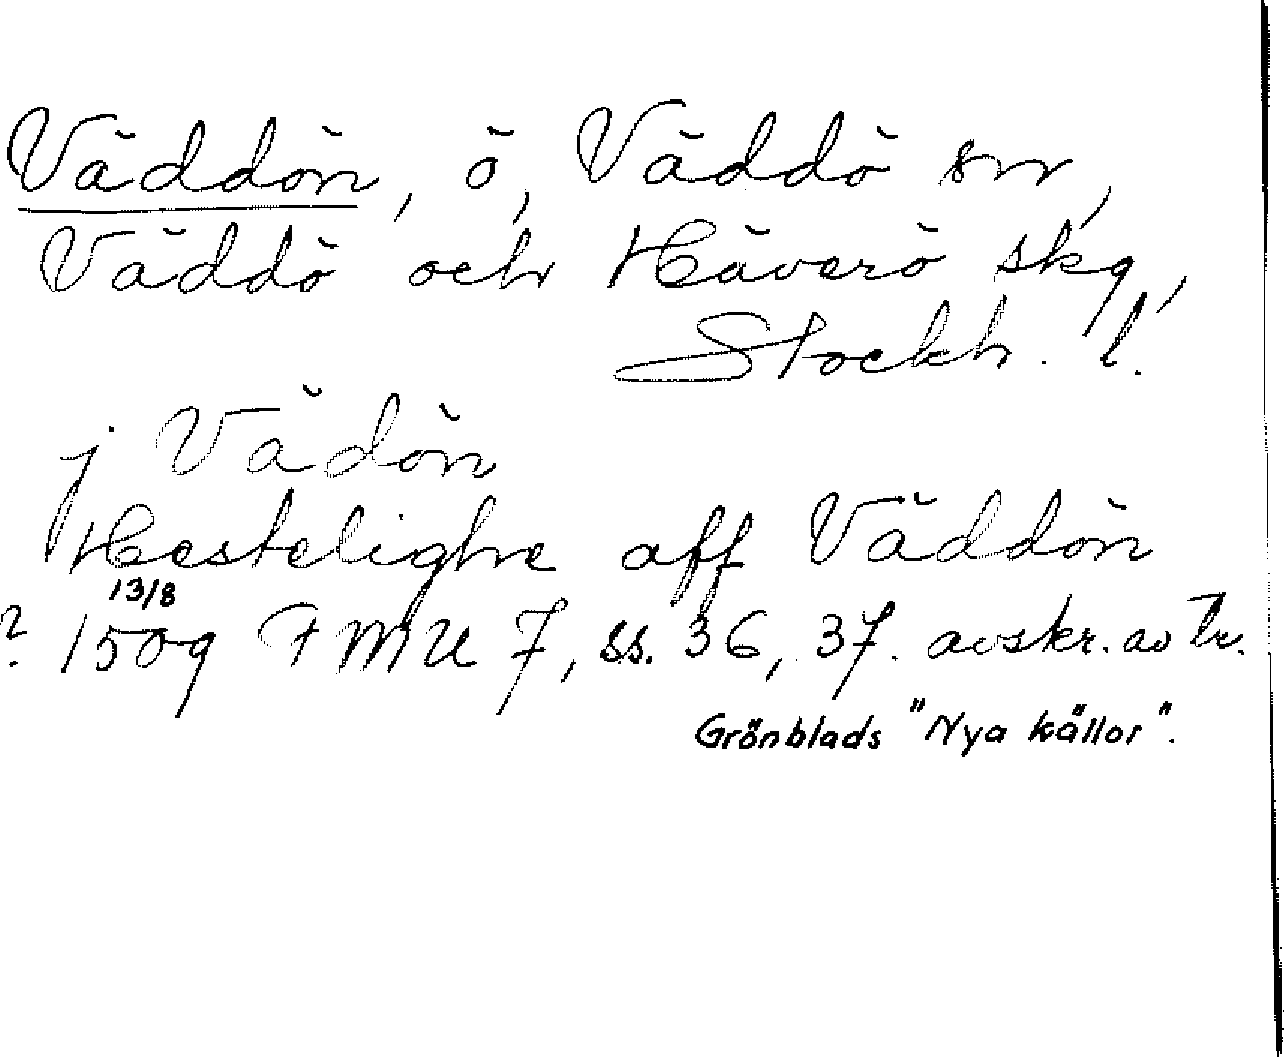 Väddön, ö, Väddö sn,
Väddö och Häverö skg,
Stockh. l.
j Vädön
Hestelighe aff Väddön
13/8
? 1509 FMU 7, ss. 36, 37. avskr. av tr.
Grönblads "Nya källor".